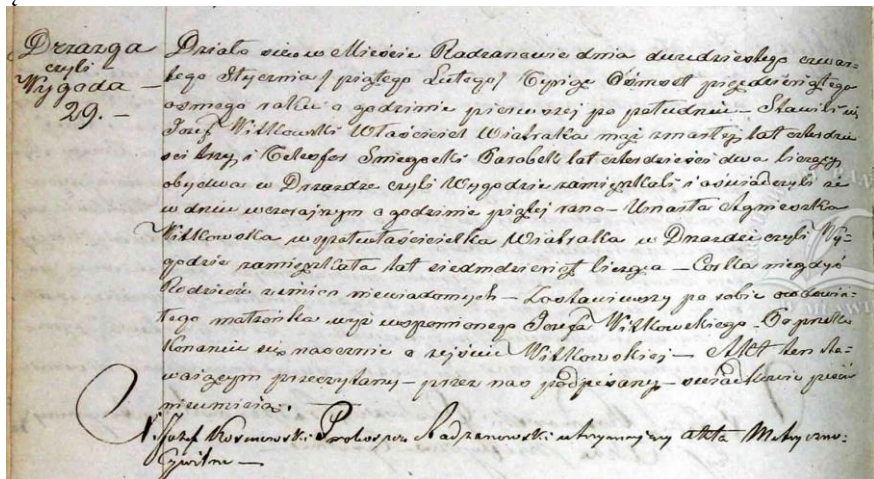 Drzazga
czyli
Wygoda —
29. —
Działo się w Mieście Radzanowie dnia dwudziestego czwar-
tego Stycznia / piątego Lutego / Tysiąc Ośmset pięćdziesiątego
osmego roku o godzinie pierwszej po południu — Stawili się
Jozef Witkowski Właściciel Wiatraka mąż zmarłej lat czterdzie
ści trzy, i Telesfor Smiegocki Parobek lat czterdzieści dwa liczący
obydwa w Drzazdze czyli Wygodzie zamieszkali i oświadczyli że
w dniu wczorajszym o godzinie piątej rano — Umarła Agnieszka
Witkowska współwłaścicielka Wiatraka w Drzazdze czyli Wy-
godzie zamieszkała lat siedmdziesiąt licząca — Corka niegdyś
Rodziców z imion niewiadomych — Zostawiwszy po sobie owdowia-
łego małżonka wyż wspomnionego Jozefa Witkowskiego. Po prze-
konaniu się naocznie o zejściu Witkowskiej — Akt ten sta-
waiącym przeczytany — przez nas podpisany — świadkowie pisać
nieumieią.
Jozef Proboszcz Radzanowski utrzymujący akta Metryczno-
Cywilne —